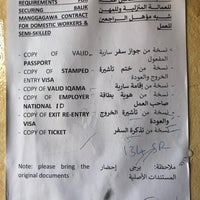 REQUIREMENTS FOR
SECURING BALIK
MANGGAGAWA CONTRACT
FOR DOMESTIC WORKERS &
SEMI-SKILLED
للعمالة المنزلية والمهن
شبه مؤهل الراجعين
للعمل
- COPY OF VALID PASSPORT
- COPY OF STAMPED ENTRY VISA
- COPY OF VALID IQAMA
- COPY OF EMPLOYER NATIONAL ID
- COPY OF EXIT RE-ENTRY VISA
- COPY OF TICKET
- نسخة من جواز سفر سارية المفعول
- نسخة من ختم تأشيرة الخروج والعودة
- نسخة من إقامة سارية
- نسخة من هوية بطاقة صاحب العمل
- نسخة من تأشيرة الخروج والعودة
- نسخة من تذكرة السفر
134 SR
Note: please bring the
original documents
ملاحظة: يرجى إحضار
المستندات الأصلية